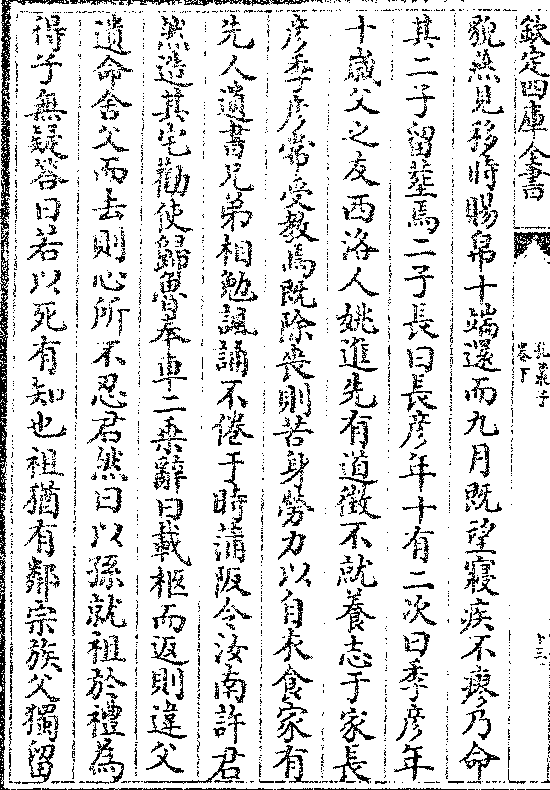 欽定四庫全書
孔叢子
卷下
貌燕見移時賜帛十端還而九月既望寢疾不瘳乃命
其二子留塟焉二子長曰長彦年十有二次曰季彦年
十歲父之友西洛人姚進先有道徴不就養志于家長
彦季彦常受教焉既除喪則苦身勞力以自衣食家有
先人遺書兄弟相勉諷誦不倦于時蒲阪令汝南許君
然造其宅勸使歸魯奉車二乘辭曰載柩而返則違父
遺命舍父而去則心所不忍君然曰以孫就祖於禮為
得子無疑答曰若以死有知也祖猶有鄰宗族父獨留